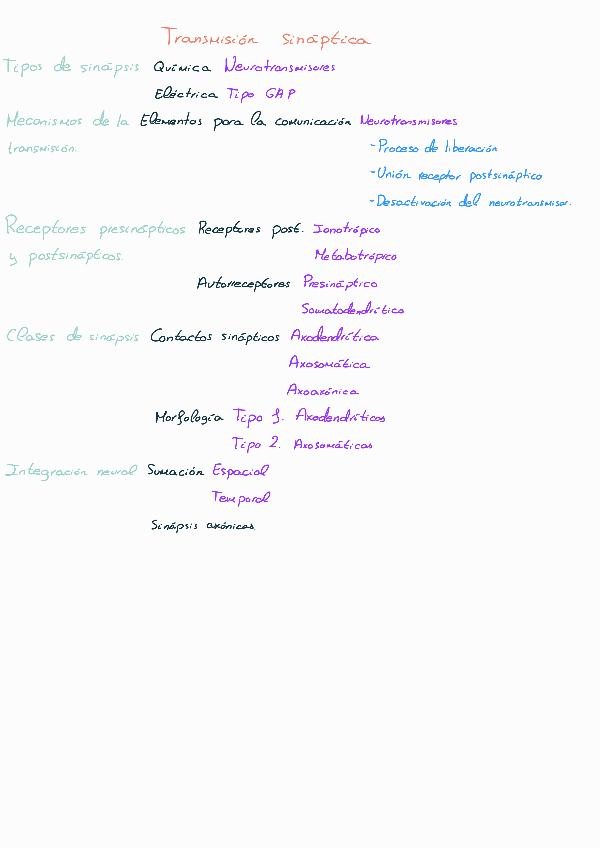 Transmisión sináptica
Tipos de sinápsis Química Neurotransmisores
Eléctrica Tipo GAP
Mecanismos de la Elementos para la comunicación Neurotransmisores
transmisión. -Proceso de liberación
-Unión receptor postsináptico
-Desactivación del neurotransmisor.
Receptores presinápticos Receptores post. Ionotrópico
y postsinápticos. Metabotrópico
Autorreceptores Presináptico
Somatodendrítico
Clases de sinápsis Contactos sinápticos Axodendrítica
Axosomática
Axoaxónica
Morfología Tipo 1. Axodendríticos
Tipo 2. Axosomáticos
Integración neural Sumación Espacial
Temporal
Sinápsis axónicas.